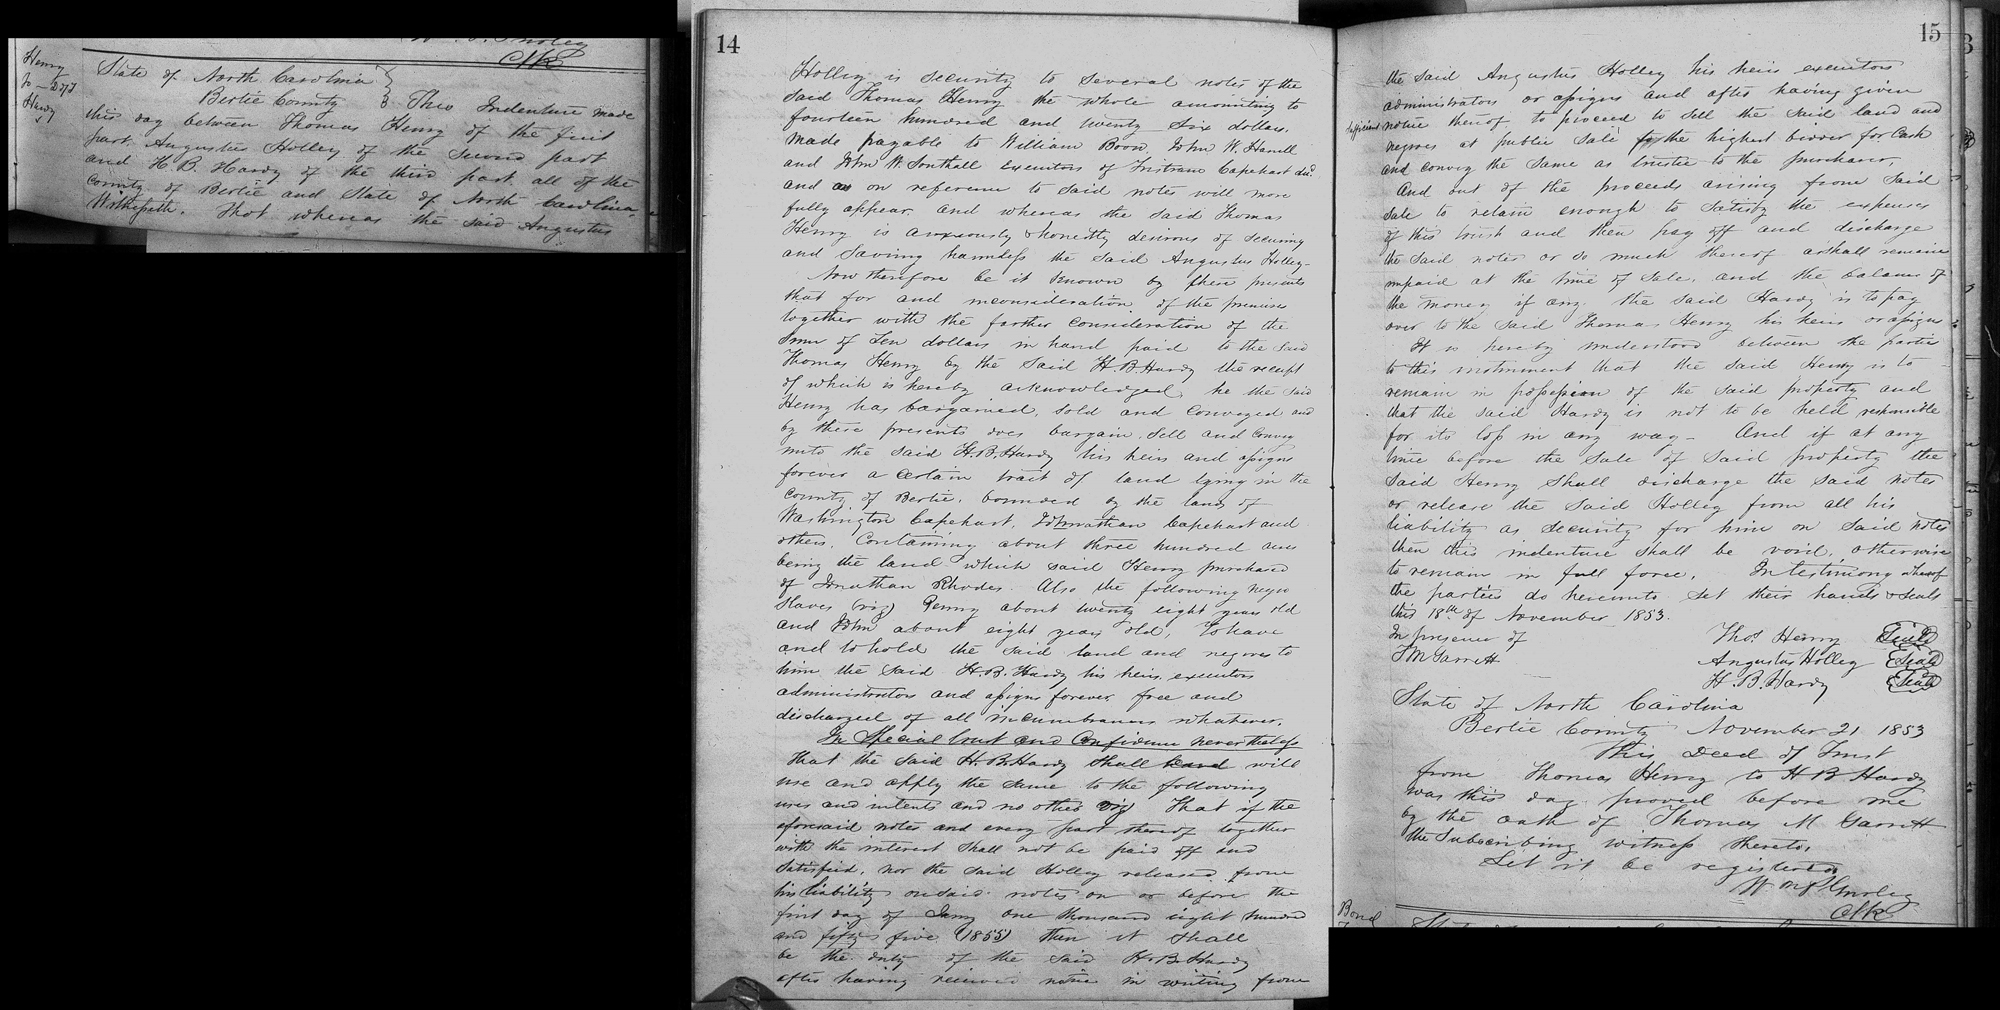 Henry
To - D of T
Hardy
Clk
State of North Carolina
Bertie County } This Indenture made
this day between Thomas Henry of the first
part, Augustus Holley of the second part
and H. B. Hardy of the third part all of the
County of Bertie and State of North Carolina
Witnesseth. That whereas the said Augustus
14
Holley is security to several notes of the
said Thomas Henry the whole amounting to
fourteen hundred and twenty six dollars.
made payable to William Boon, John W. Harrell
and John W. Southall executors of Tristram Capehart decd.
and as on reference to said notes will more
fully appear. and whereas the said Thomas
Henry is anxiously & honestly desirous of securing
and saving harmless the said Augustus Holley -
Now therefore be it known by these presents
that for and inconsideration of the premises
together with the farther consideration of the
sum of Ten dollars in hand paid to the said
Thomas Henry by the said H. B. Hardy the receipt
of which is hereby acknowledged, he the said
Henry has bargained, sold and conveyed and
by these presents does bargain, sell and convey
unto the said H. B. Hardy his heirs and assigns
forever a certain tract of land lying in the
County of Bertie, bounded by the lands of
Washington Capehart, Johnathan Capehart and
others, Containing about three hundred acres
being the land which said Henry purchased
of Jonathan Rhodes. Also the following negro
slaves (viz) Penny about twenty eight years old
and John about eight years old, To have
and to hold the said land and negroes to
him the said H. B. Hardy his heirs, executors
administrators and assigns forever free and
discharged of all incumbrances whatever.
In Special trust and Confidence nevertheless
That the said H. B. Hardy shall and will
use and apply the same to the following
uses and intents and no other viz That if the
aforesaid notes and every part thereof together
with the interest shall not be paid off and
satisfied, nor the said Holley released from
his liability on said notes on or before the
first day of Jany one thousand eight hundred
and fifty five (1855) then it shall
be the duty of the said H. B. Hardy
after having received notice in writing from
15
the said Angustus Holley his heirs executors
administrators or assigns and after having given
sufficient notice thereof to proceed to sell the said land and
negroes at public sale to the highest bidder for Cash
and convey the same as trustee to the purchaser,
And out of the proceeds arising from said
sale to retain enough to satisfy the expenses
of this trust and then pay off and discharge
the said notes or so much thereof as shall remain
unpaid at the time of sale, and the balance of
the money if any the said Hardy is to pay
over to the said Thomas Henry his heirs or assigns
It is hereby understood between the parties
to this instrument that the said Henry is to
remain in possession of the said property and
that the said Hardy is not to be held responsible
for its loss in any way - And if at any
time before the sale of said property the
said Henry shall discharge the said notes
or release the said Holley from all his
liability as security for him on said notes
then this indenture shall be void, otherwise
to remain in full force. In testimony whereof
the parties do hereunto set their hands & seals
this 18th of November 1853.
In presence of Thos. Henry (Seal)
T M Garrett Angustus Holley (Seal)
H. B. Hardy (Seal)
State of North Carolina
Bertie County November 21 1853
This Deed of Trust
from Thomas Henry to H B Hardy
was this day proved before me
by the oath of Thomas M Garrett
the Subscribing witness thereto.
Let it be registered
Clk
Bond